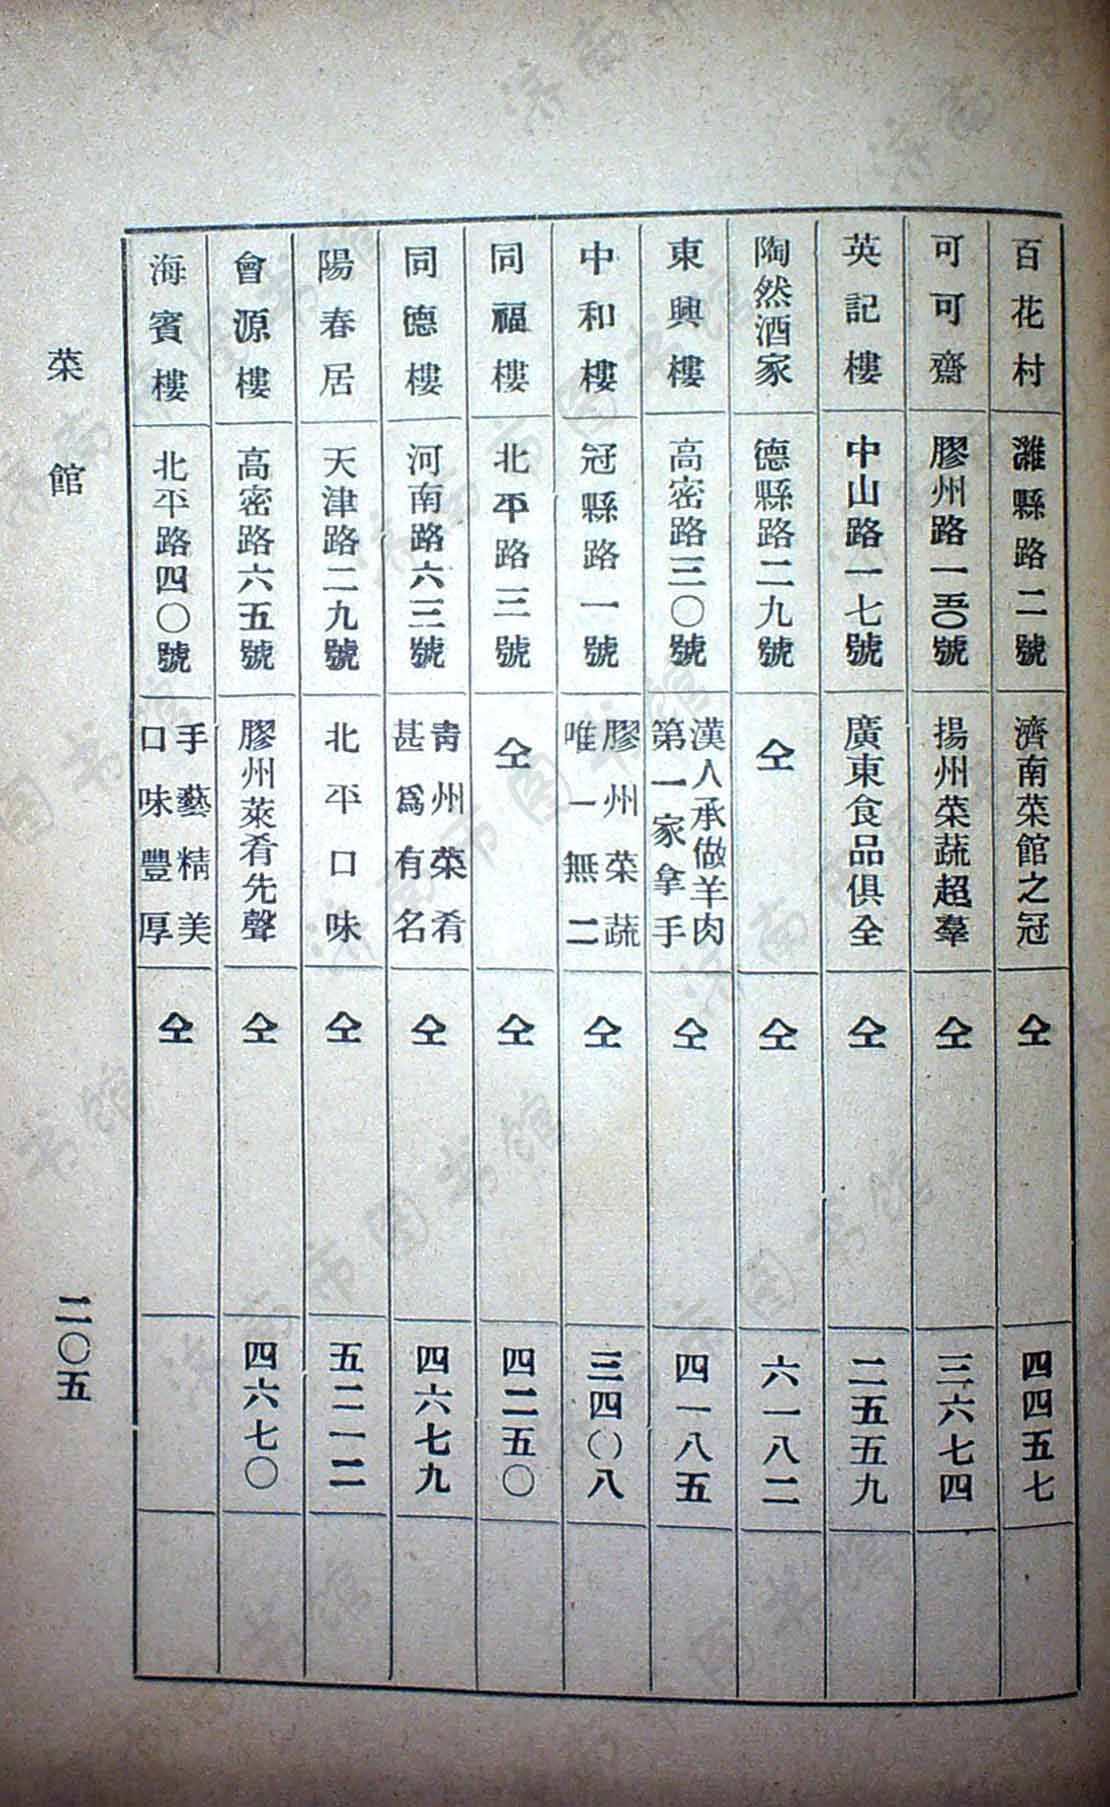 百花村 濰縣路二號 濟南菜館之冠 仝 四四五七
可可齋 膠州路一五〇號 揚州菜蔬超羣 仝 三六七四
英記樓 中山路一七號 廣東食品俱全 仝 二五五九
陶然酒家 德縣路二九號 仝 仝 六一八二
東興樓 高密路三〇號 漢人承做羊肉
第一家拿手 仝 四一八五
中和樓 冠縣路一號 膠州菜蔬
唯一無二 仝 三四〇八
同福樓 北平路三號 仝 仝 四二五〇
同德樓 河南路六三號 青州菜肴
甚爲有名 仝 四六七九
陽春居 天津路二九號 北平口味 仝 五二一二
會源樓 高密路六五號 膠州萊肴先聲 仝 四六七〇
海賓樓 北平路四〇號 手藝精美
口味豐厚 仝
菜館
二〇五
济南市图书馆